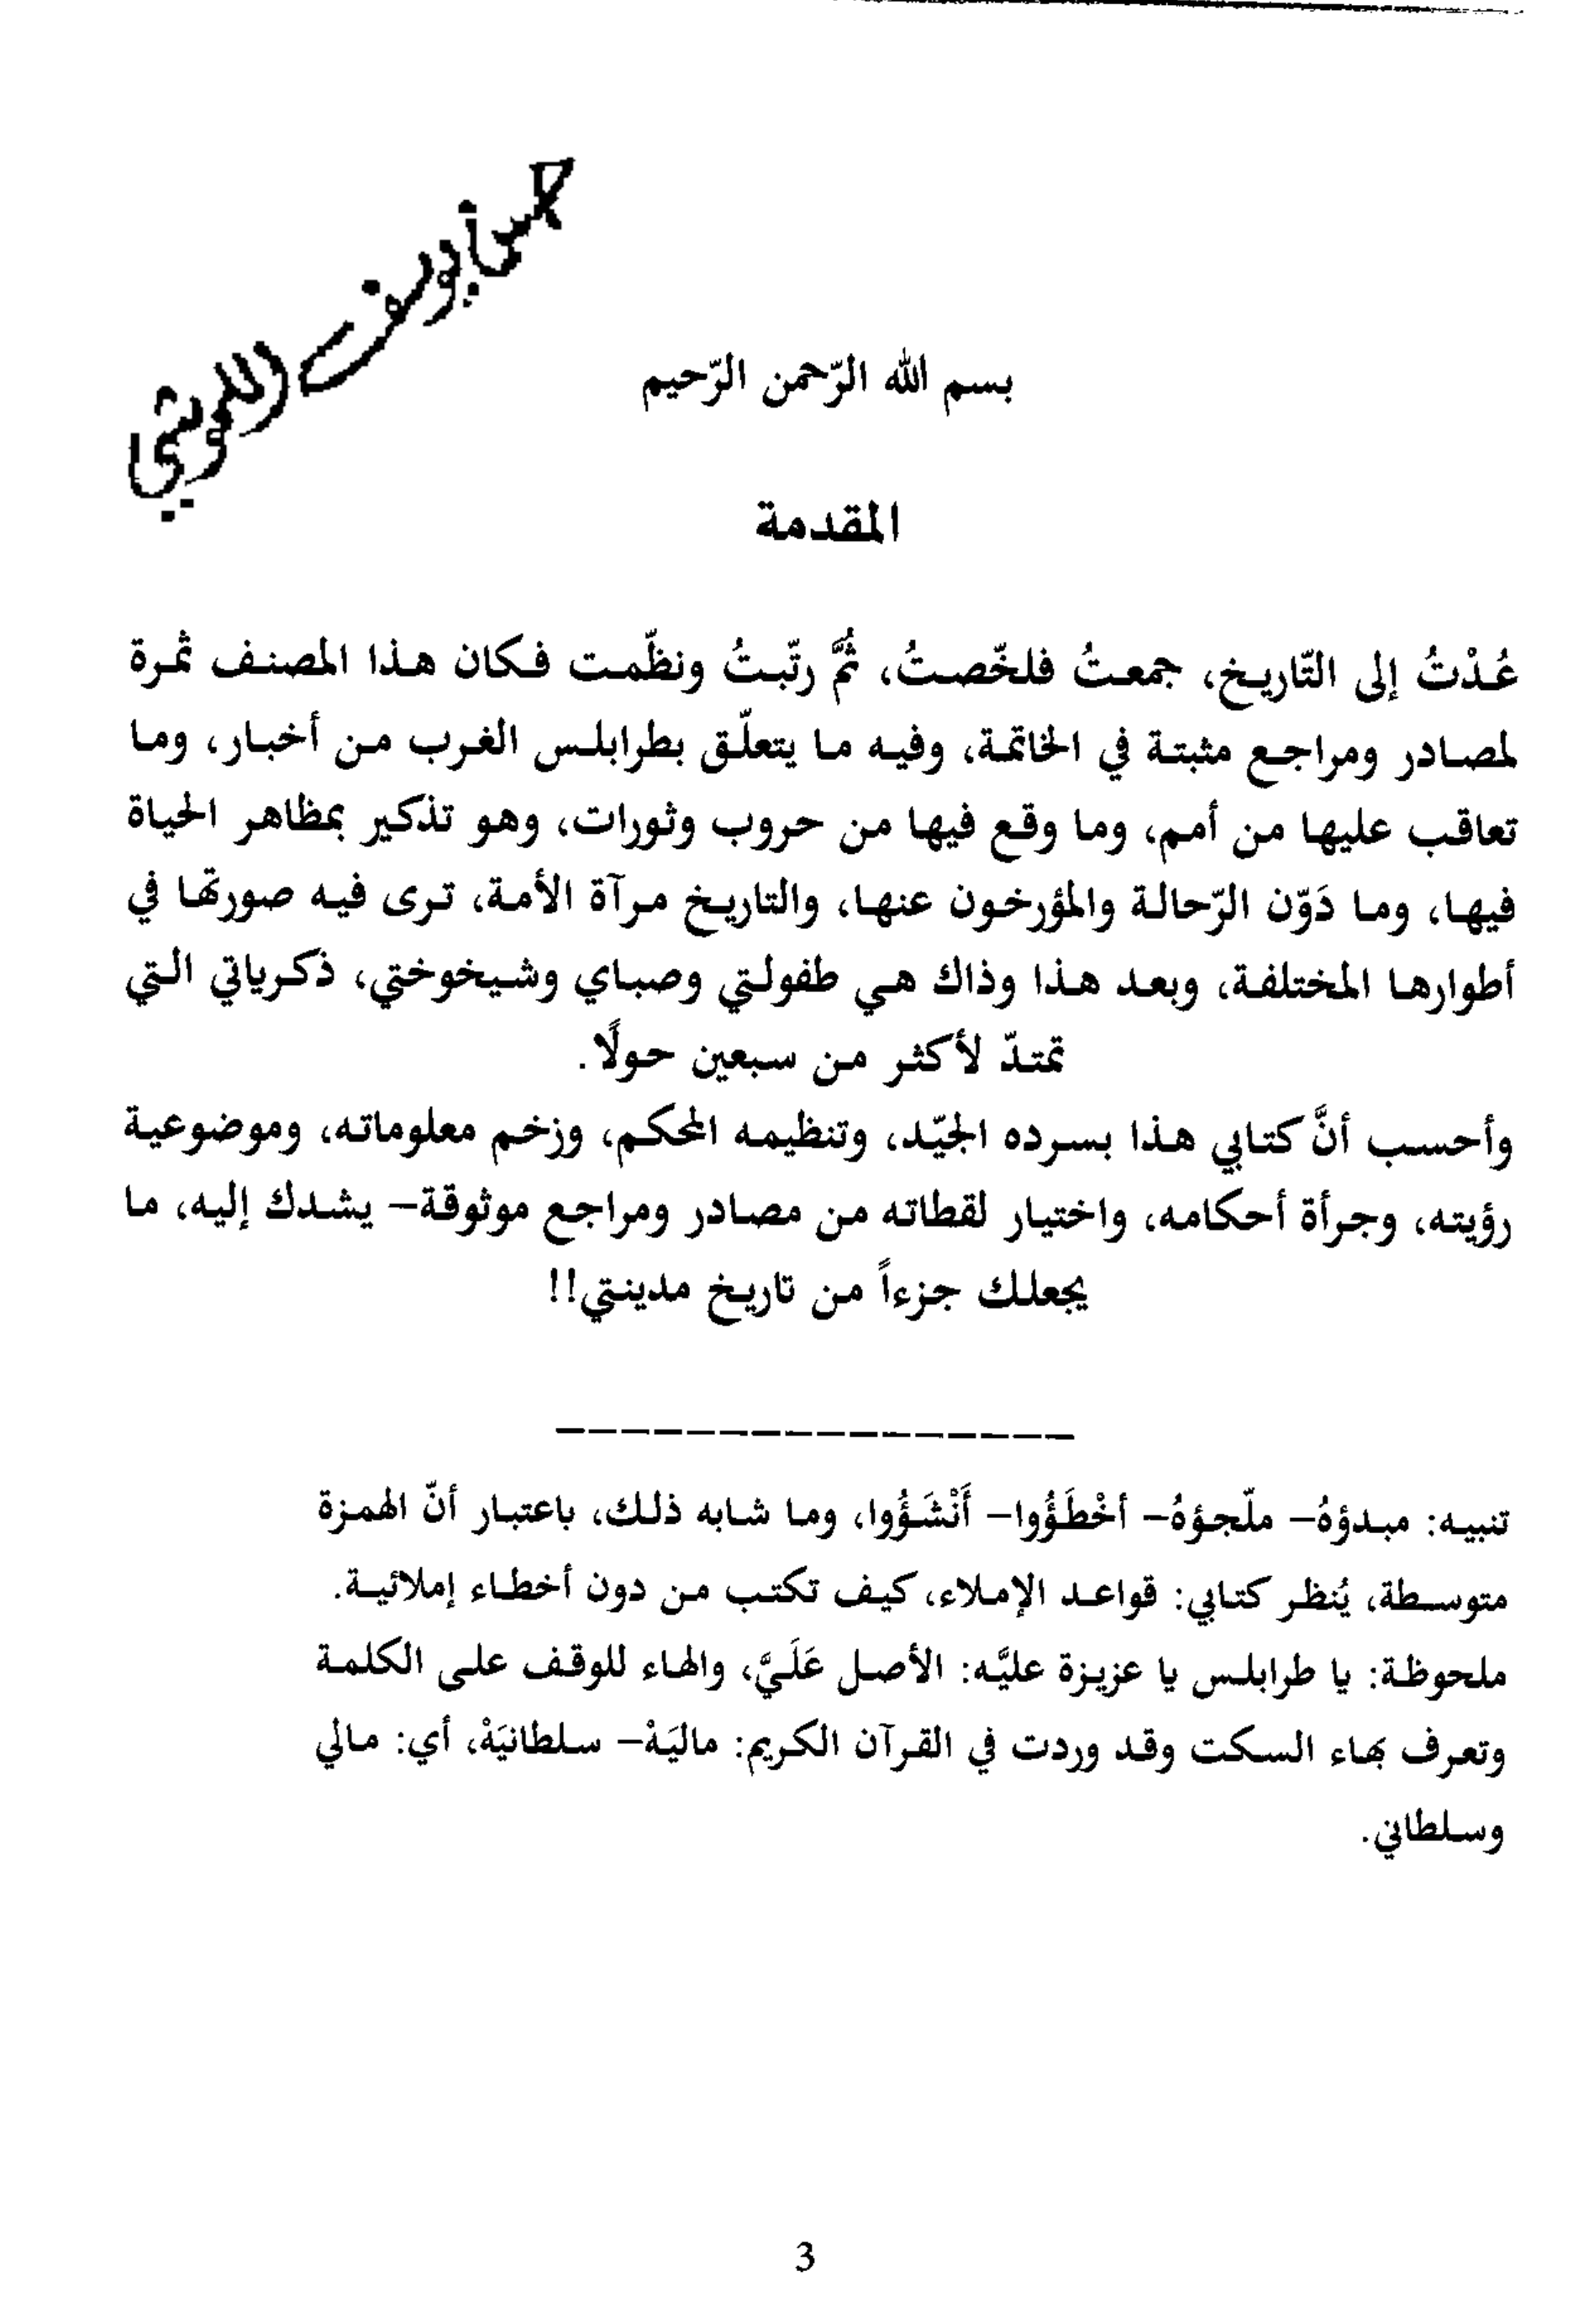 بسم الله الرّحمن الرّحيم
المقدمة
عُدْتُ إلى التّاريخ، جمعتُ فلخّصتُ، ثُمَّ رتّبتُ ونظّمت فكان هذا المصنف ثمرة
لمصادر ومراجع مثبتة في الخاتمة، وفيه ما يتعلّق بطرابلس الغرب من أخبار، وما
تعاقب عليها من أمم، وما وقع فيها من حروب وثورات، وهو تذكير بمظاهر الحياة
فيها، وما دَوّن الرّحالة والمؤرخون عنها، والتاريخ مرآة الأمة، ترى فيه صورتها في
أطوارها المختلفة، وبعد هذا وذاك هي طفولتي وصباي وشيخوختي، ذكرياتي التي
تمتدّ لأكثر من سبعين حولًا.
وأحسب أنَّ كتابي هذا بسرده الجيّد، وتنظيمه المحكم، وزخم معلوماته، وموضوعية
رؤيته، وجرأة أحكامه، واختيار لقطاته من مصادر ومراجع موثوقة– يشدك إليه، ما
يجعلك جزءاً من تاريخ مدينتي!!
تنبيه: مبدؤهُ– ملّجؤهُ– أخْطَؤُوا– أَنْشَؤُوا، وما شابه ذلك، باعتبار أنّ الهمزة
متوسطة، يُنظر كتابي: قواعد الإملاء، كيف تكتب من دون أخطاء إملائية.
ملحوظة: يا طرابلس يا عزيزة عليَّه: الأصل عَلَيَّ، والهاء للوقف على الكلمة
وتعرف بهاء السكت وقد وردت في القرآن الكريم: ماليَهْ– سلطانيَهْ، أي: مالي
وسلطاني.
3